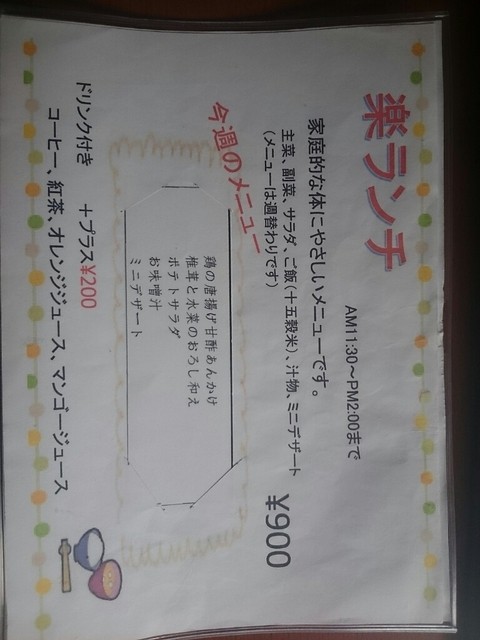 楽ランチ
AM11:30～PM2:00まで
家庭的な体にやさしいメニューです。
主菜、副菜、サラダ、ご飯(十五穀米)、汁物、ミニデザート
(メニューは週替わりです)
¥900
今週のメニュー
鶏の唐揚げ甘酢あんかけ
椎茸と水菜のおろし和え
ポテトサラダ
お味噌汁
ミニデザート
ドリンク付き ＋プラス¥200
コーヒー、紅茶、オレンジジュース、マンゴージュース